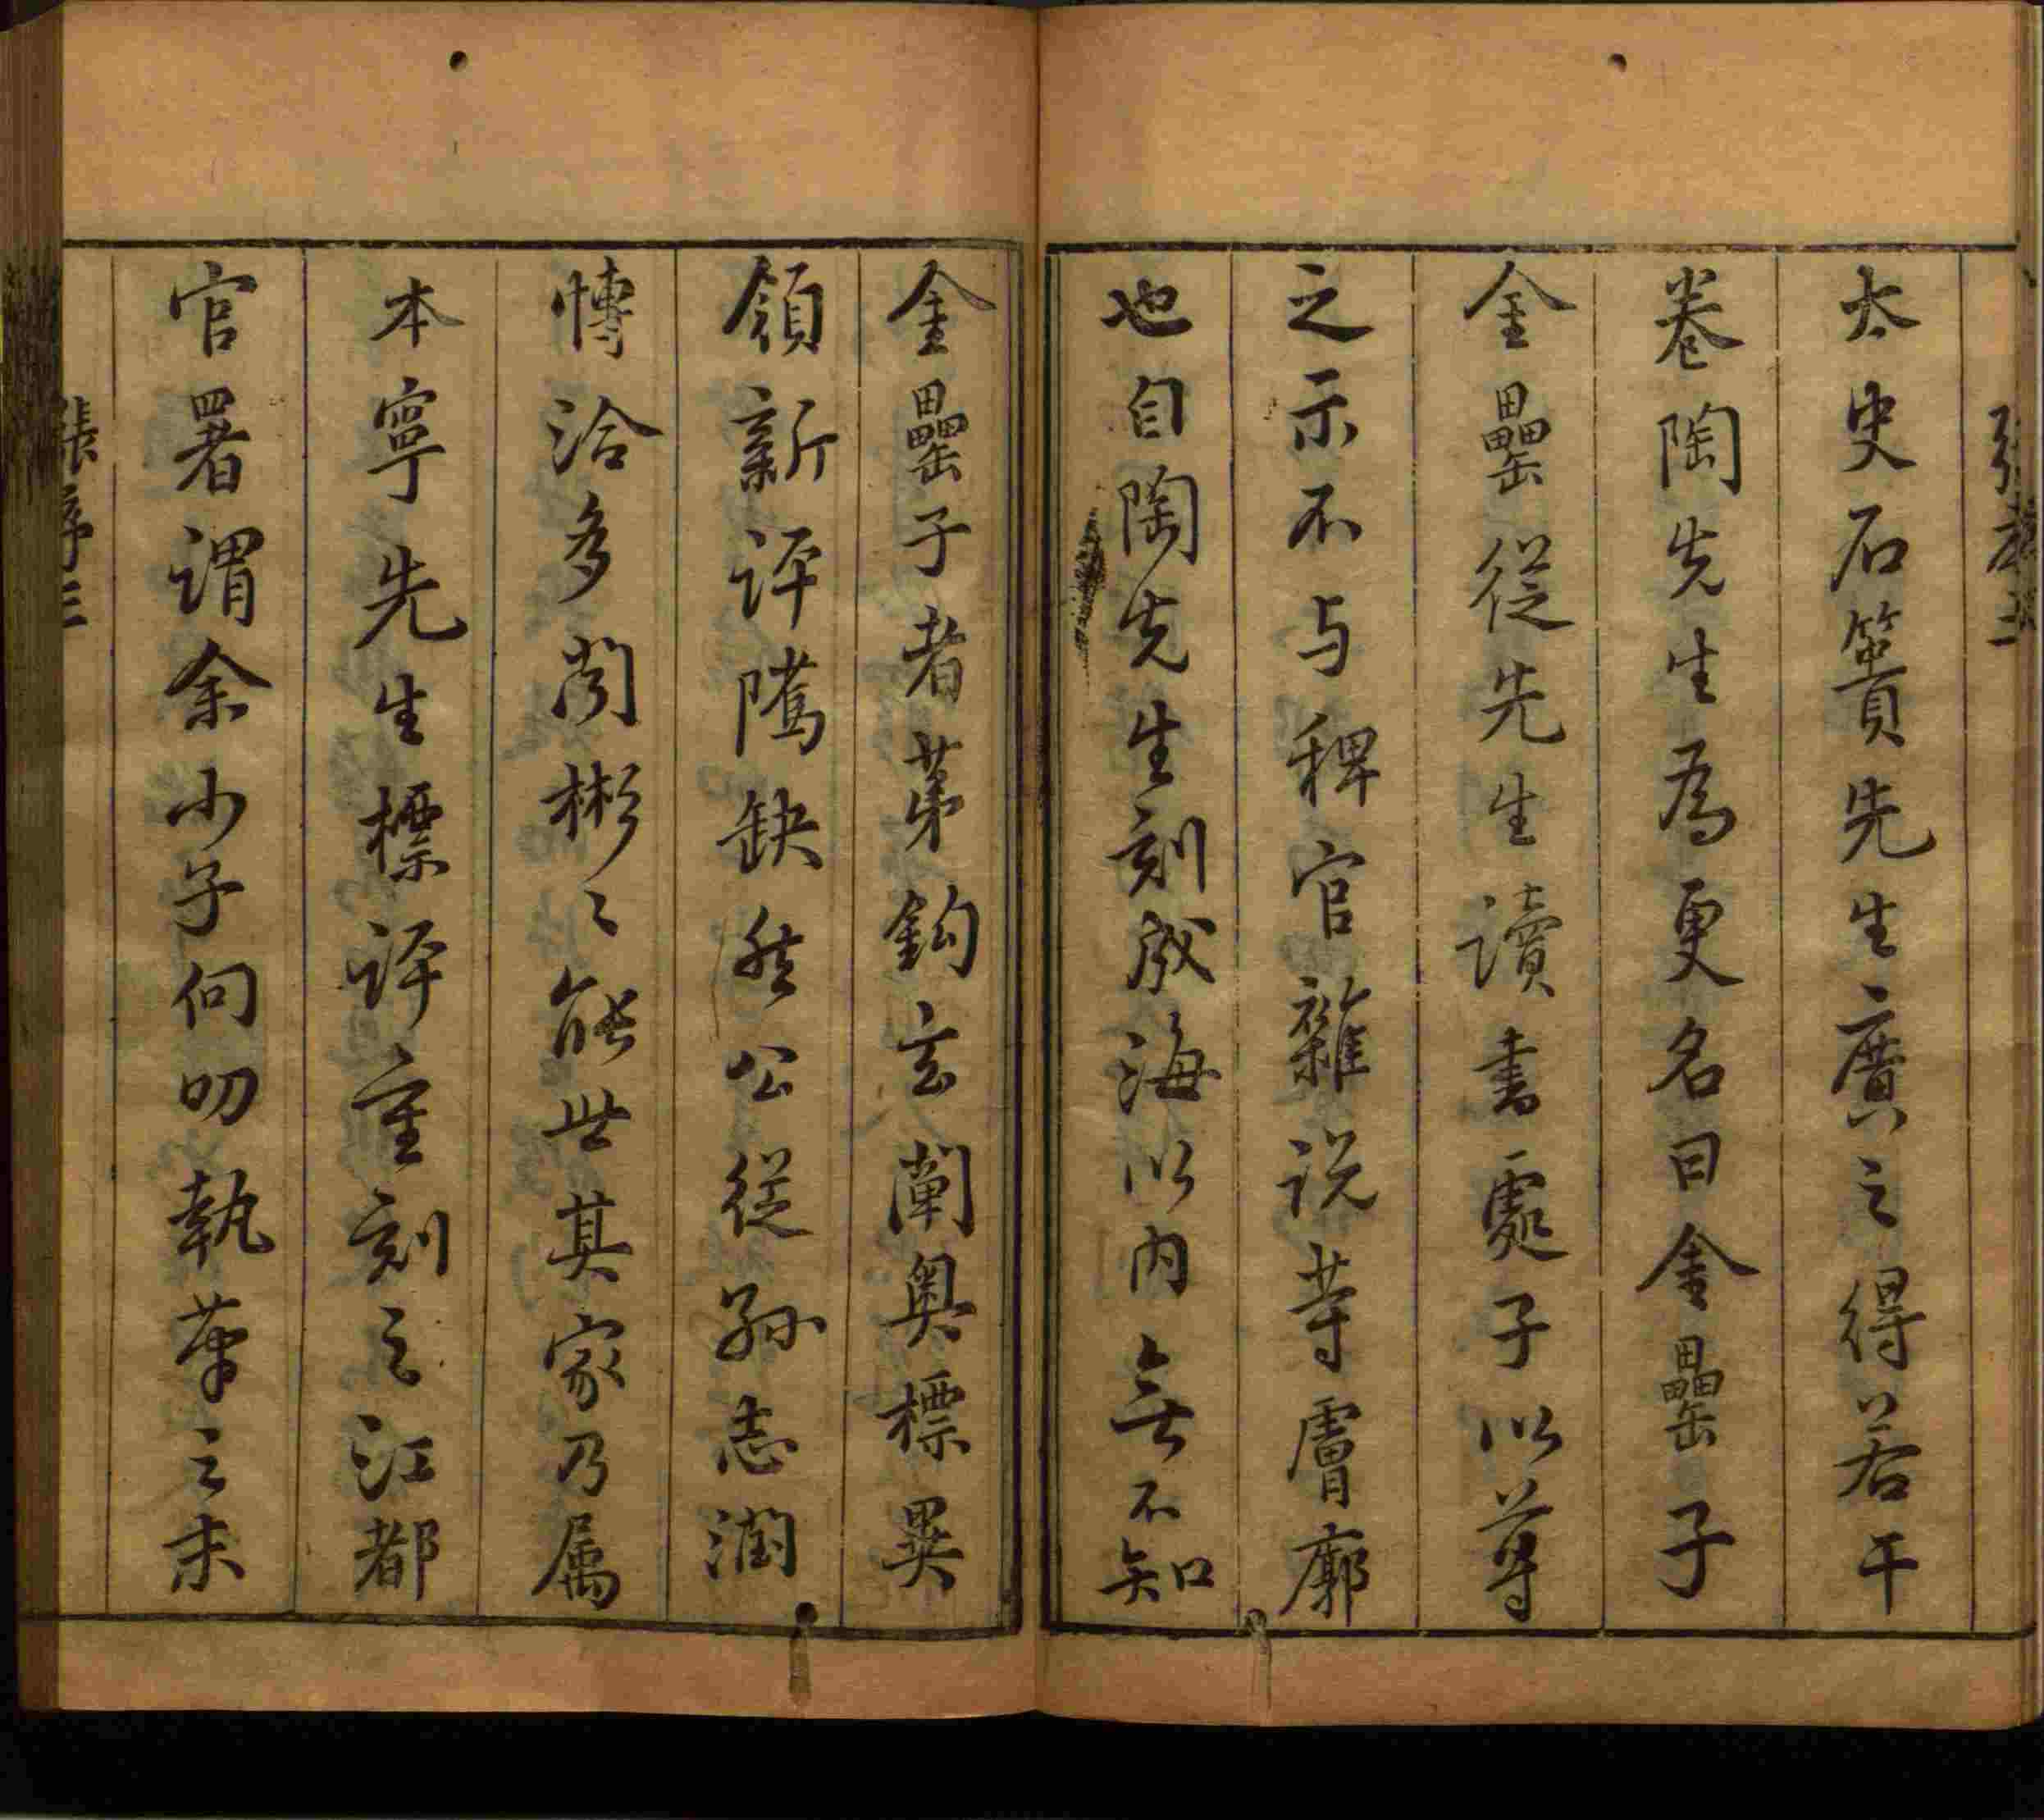 太史石簣先生廣之得若干
卷陶先生為更名曰金罍子
金罍從先生讀書處子以尊
之示不与稗官雜説等膚廓
也自陶先生刻成海以內無不知
金罍子者苐鈎玄闡奧標異
領新評隲缺然公從孫志淵
愽洽多聞彬〻能世其家乃属
本寧先生標評重刻之江都
官署謂余小子何叨執筆之末
張序三